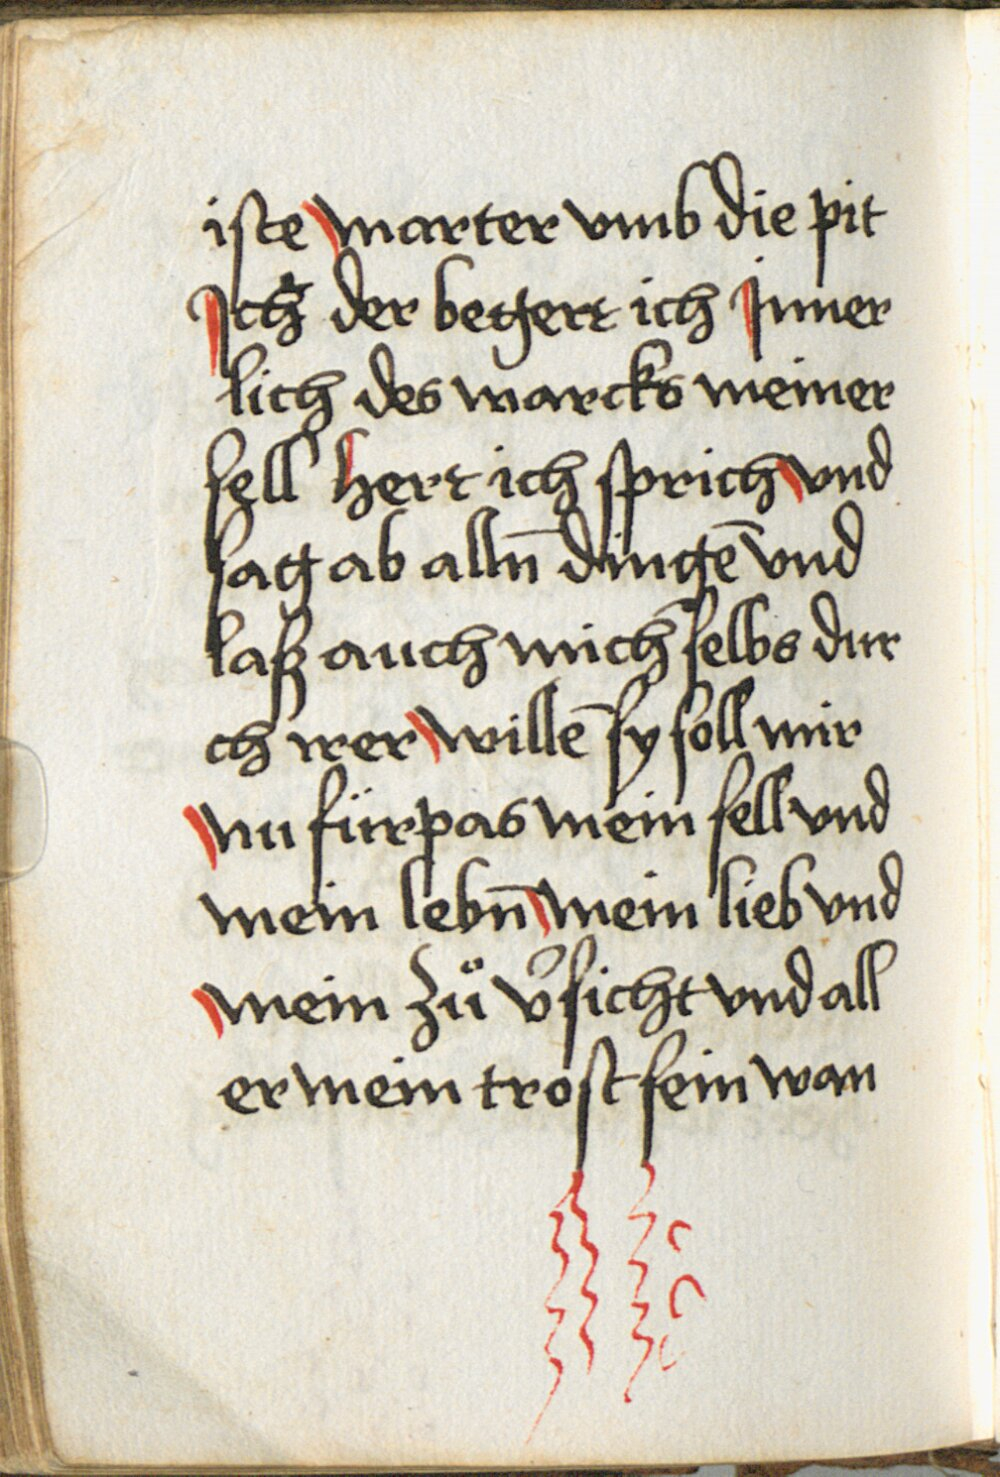 iste marter vmb die pit
Ich der begert ich Inner
lich des marcks meiner
sell hert ich sprich vnd
sag ab alln̄ dingē vnd
laß auch mich selbs dur
ch irer willē sy soll mir
nu fürpas mein sell vnd
mein lebn̄ mein lieb vnd
mein zů v̉sicht vnd all
er mein trost sein wan